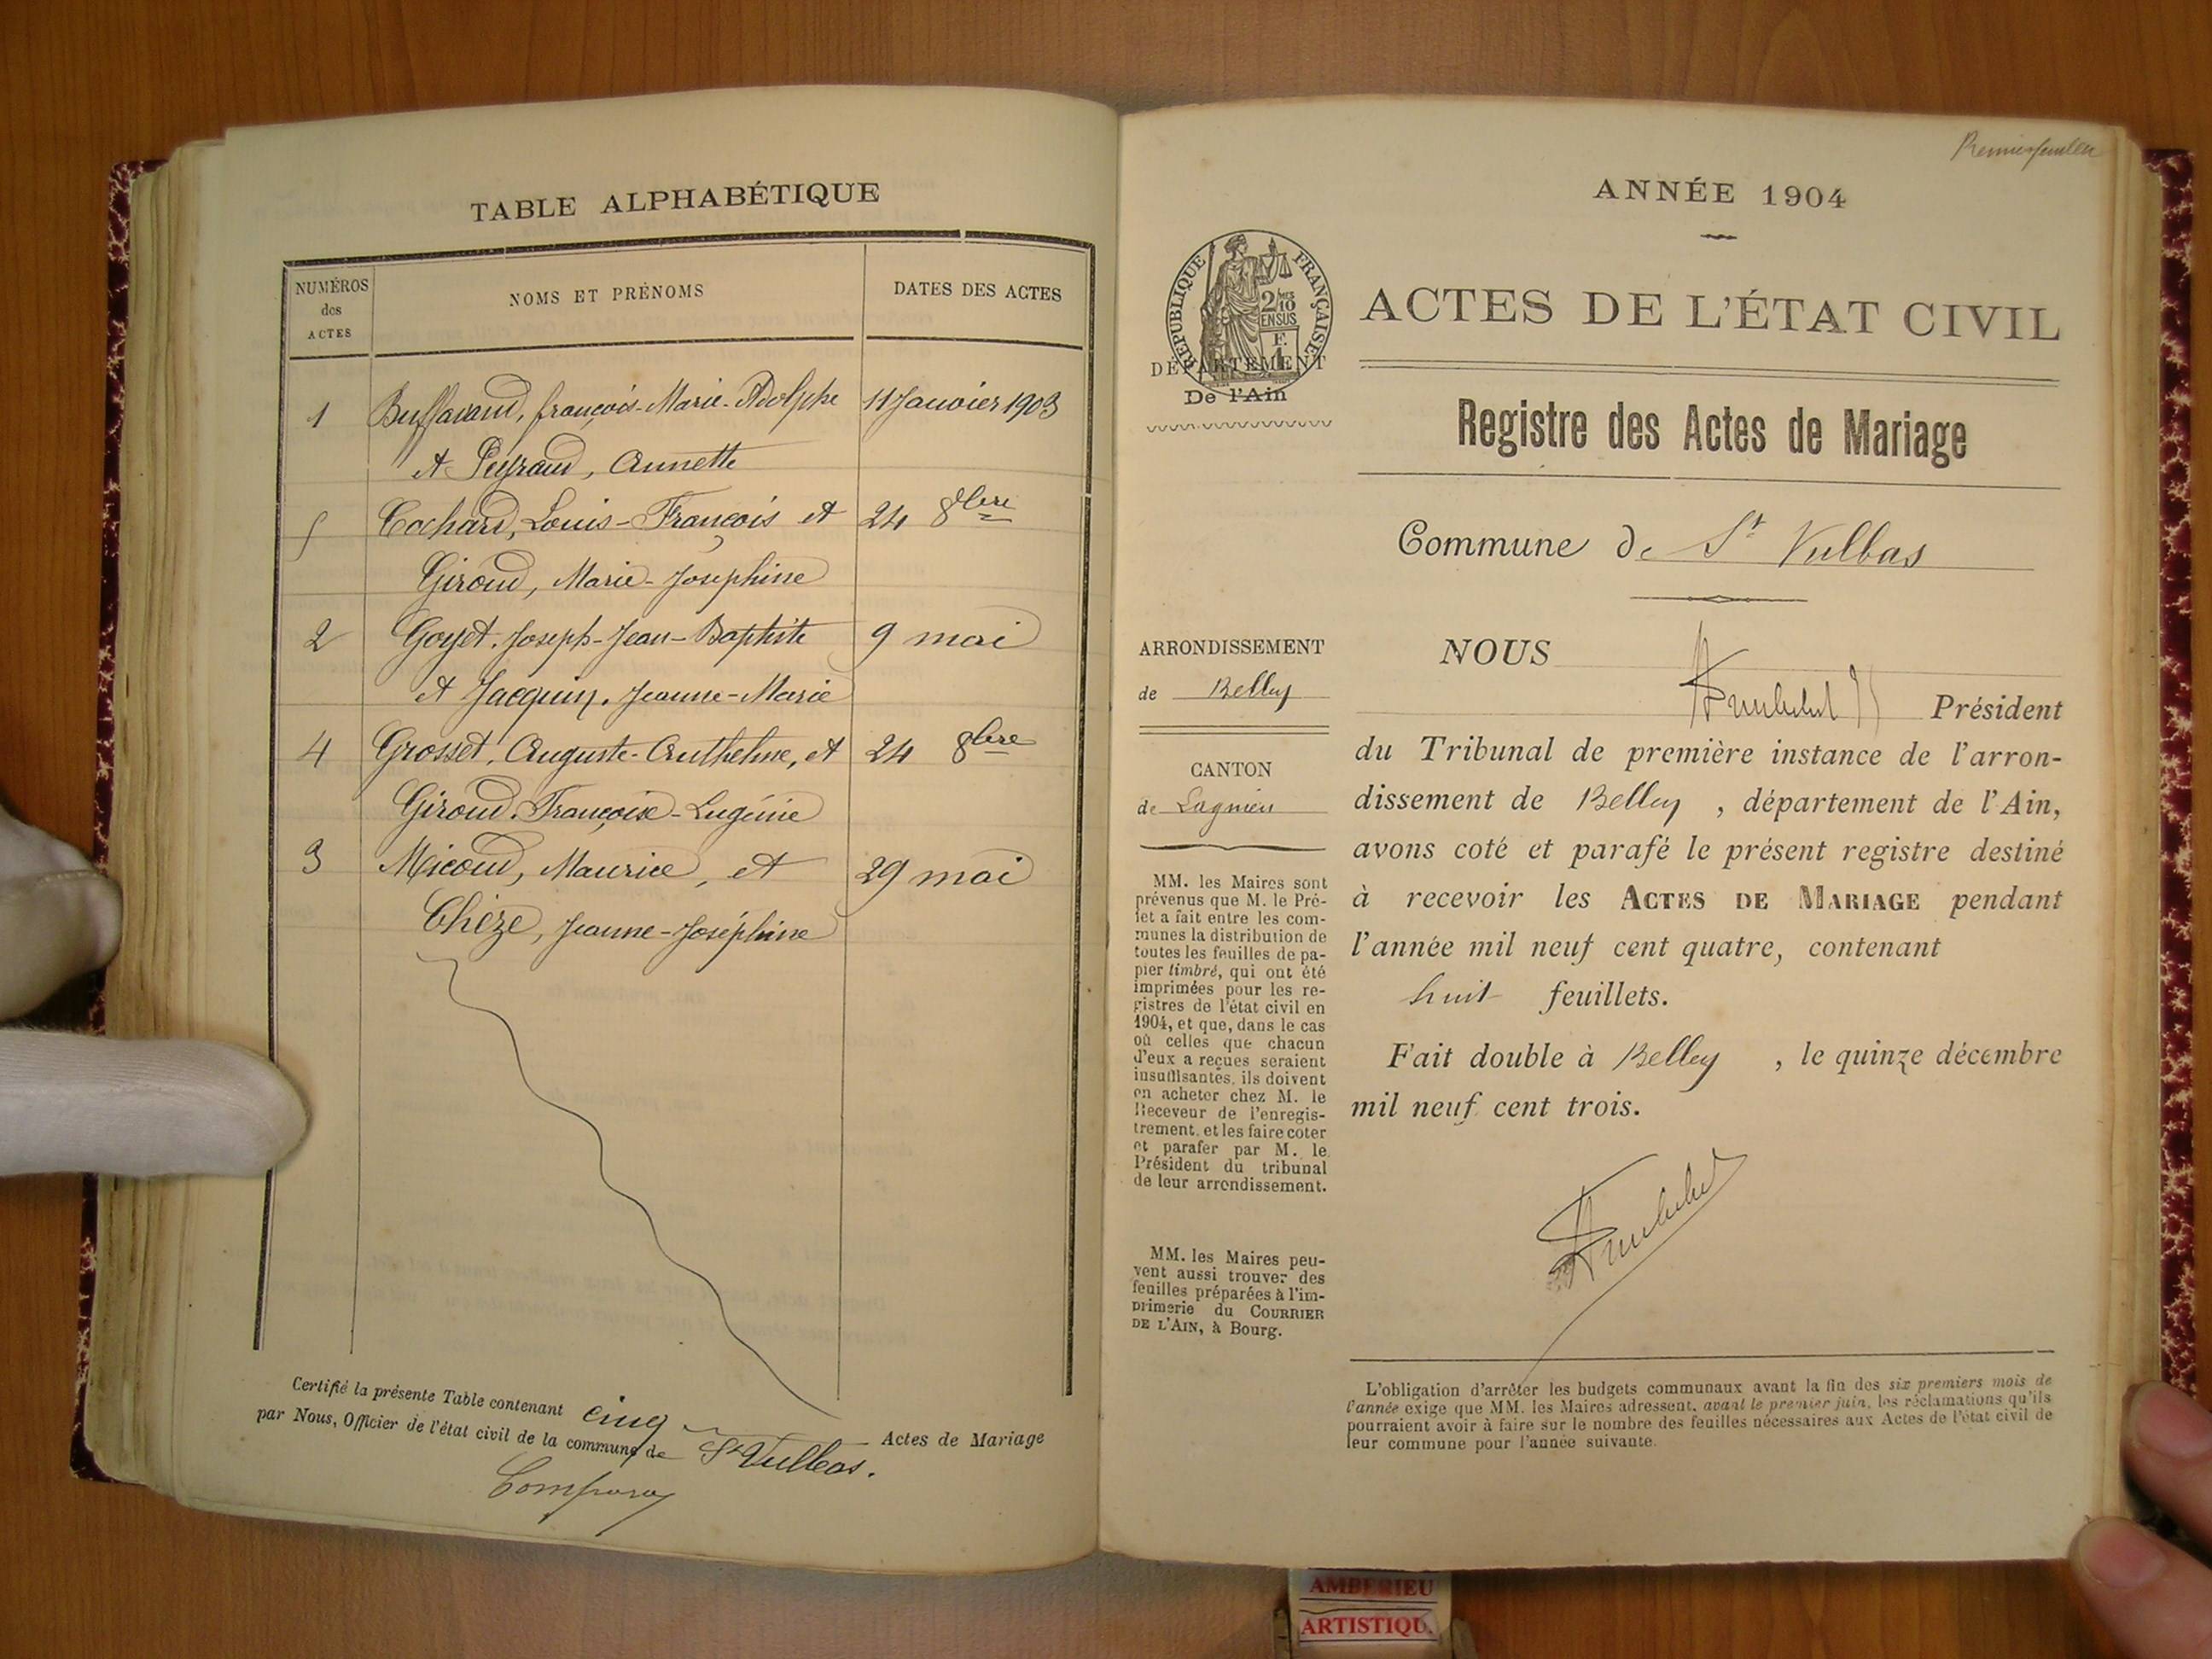 TABLE ALPHABÉTIQUE
NUMÉROS
des
ACTES
NOMS ET PRÉNOMS
DATES DES ACTES
1 Buffavand, françois-Marie-Adolphe 11 Janvier 1903
et Peyraud, Annette
5 Cochard, Louis-François et 24 8bre
Giroud, Marie-Josephine
2 Goyet, Joseph-Jean-Baptiste 9 mai
et Jacquin, Jeanne-Marie
4 Grosset, Auguste-Anthelme, et 24 8bre
Giroud, Françoise-Eugénie
3 Micoud, Maurice, et 29 mai
Chèze, Jeanne-Joséphine
Certifié la présente Table contenant cinq Actes de Mariage
par Nous, Officier de l'état civil de la commune de St Vulbas.
ANNÉE 1904
RÉPUBLIQUE FRANÇAISE
2/10
EN SUS
DÉPARTEMENT
De l'Ain
ACTES DE L'ÉTAT CIVIL
Registre des Actes de Mariage
Commune de St Vulbas
ARRONDISSEMENT
de Belley
CANTON
de Lagnieu
MM. les Maires sont
prévenus que M. le Pré-
fet a fait entre les com-
munes la distribution de
toutes les feuilles de pa-
pier timbré, qui ont été
imprimées pour les re-
gistres de l'état civil en
1904, et que, dans le cas
où celles que chacun
d'eux a reçues seraient
insuffisantes, ils doivent
en acheter chez M. le
Receveur de l'enregis-
trement, et les faire coter
et parafer par M. le
Président du tribunal
de leur arrondissement.
MM. les Maires peu-
vent aussi trouver des
feuilles préparées à l'im-
primerie du COURRIER
DE L'AIN, à Bourg.
NOUS
Président
du Tribunal de première instance de l'arron-
dissement de Belley , département de l'Ain,
avons coté et parafé le présent registre destiné
à recevoir les ACTES DE MARIAGE pendant
l'année mil neuf cent quatre, contenant
huit feuillets.
Fait double à Belley , le quinze décembre
mil neuf cent trois.
L'obligation d'arrêter les budgets communaux avant la fin des six premiers mois de
l'année exige que MM. les Maires adressent, avant le premier juin, les réclamations qu'ils
pourraient avoir à faire sur le nombre des feuilles nécessaires aux Actes de l'état civil de
leur commune pour l'année suivante.
AMBERIEU
ARTISTIQU